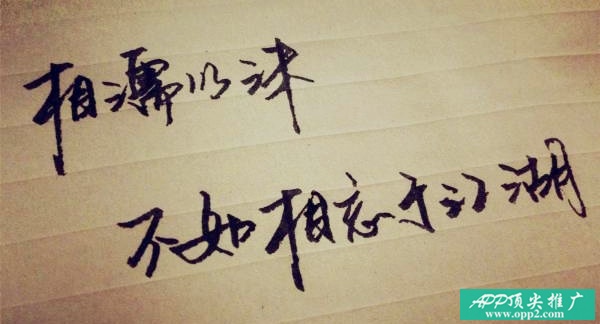 相濡以沫
不如相忘于江湖
APP顶尖推广
www.opp2.com